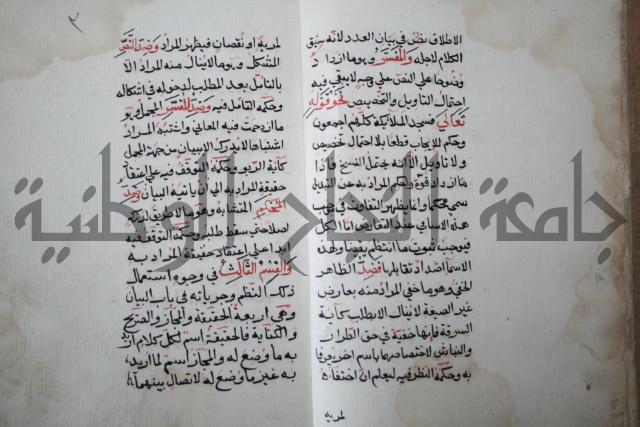 الاطلاق نص في بيان العدد لانه سيق
الكلام لاجله والمفسر وهو ما ازداد
وضوحا على النص على وجه لا يبقى فيه
احتمال التاويل والتخصيص نحو قوله
تعالى فسجد الملائكة كلهم اجمعون
وحكمه الايجاب قطعا بلا احتمال تخصيص
ولا تاويل الا انه يحتمل النسخ فاذا
ما ازداد قوة واحكم المراد به عن التبديل
سمي محكما وانما يظهر التفاوت في موجب
هذه الاسامي عند التعارض اما الكل
فيوجب ثبوت ما انتظمه يقينا ولهذه
الاسما اضداد تقابلها فضد الظاهر
الخفي وهو ما خفي المراد منه بعارض
غير الصيغة لا ينال الا بطلب كآية
السرقة فانها خفية في حق الطرار
والنباش لاختصاصهما باسم اخر يعرفا
به وحكمه النظر فيه ليعلم ان اختفاءه
لمزية
٢
لمزية او نقصان فيظهر المراد وضد النص
المشكل وهو ما لا ينال منه المراد الا
بالتامل بعد الطلب لدخوله في اشكاله
وحكمه التامل فيه وضد المفسر المجمل وهو
ما ازدحمت فيه المعاني واشتبه المراد
اشتباها لا يدرك الا ببيان من جهة المجمل
كآية الربو وحكمه التوقف فيه على اعتقاد
حقيقة المراد به الى ان ياتيه البيان وضد
المحكم المتشابه وهو ما لا طريق لدركه
اصلا حتى سقط طلبه وحكمه التوقف فيه
ابدا على اعتقاد حقيقة المراد به
والقسم الثالث في وجوه استعمال
ذلك النظم وجريانه في باب البيان
وهي اربعة الحقيقة والمجاز والصريح
والكناية فالحقيقة اسم لكل كلام اريد
به ما وضع له والمجاز اسم لما اريد
به غير ما وضع له لاتصال بينهما
جامعة النجاح الوطنية